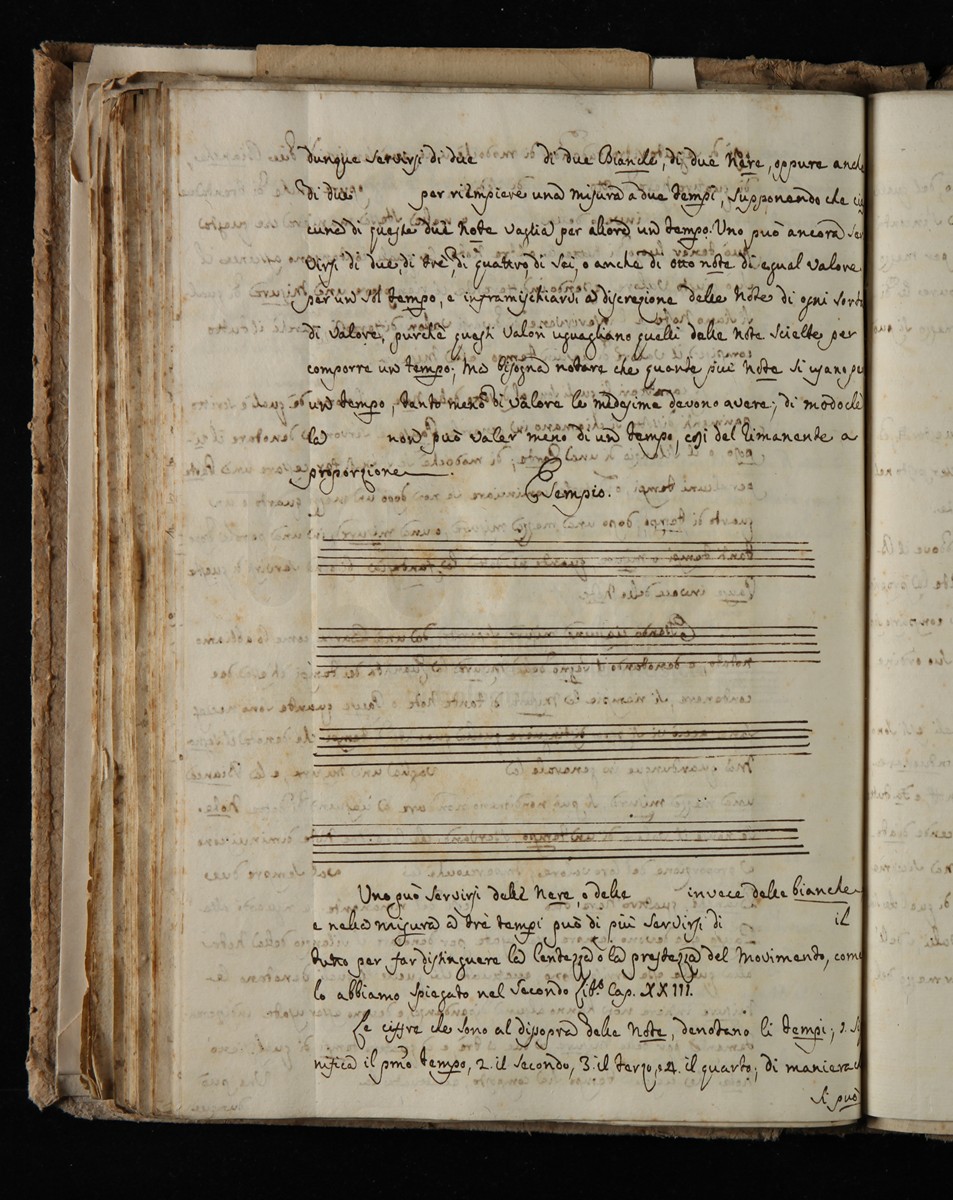 dunque servirsi di due di due Bianche, di due Nere, oppure anche
di due, per riempiere una misura a due tempi, supponendo che cia
cuna di queste due Note vaglia per allora un tempo. Uno può ancora ser
virsi di due, di trè, di quattro, di sei, o anche di otto note di egual valore
per un sol tempo, e inframischiarvi a discrezione delle Note di ogni sorte
di valore, purchè questi valori uguagliano quelli delle note scielte per
comporre un tempo; ma bisogna notare che quante più Note si usano per
un tempo, tanto meno di valore le medesime devono avere; di modochè
la non può valer meno di un tempo, così del rimanente a
proporzione.
Esempio.
Uno può servirsi delle Nere, o delle invece delle bianche
e nella misura à trè tempi può di più servirsi di il
tutto per far distinguere la lentezza o la prestezza del Movimento, come
lo abbiamo spiegato nel Secondo Lib.º Cap. XXIII.
Le cifre che sono al disopra delle Note, denotano li tempi; 1. Si
nifica il pmo tempo, 2. il secondo, 3. il terzo, 4. il quarto; di maniera
si può